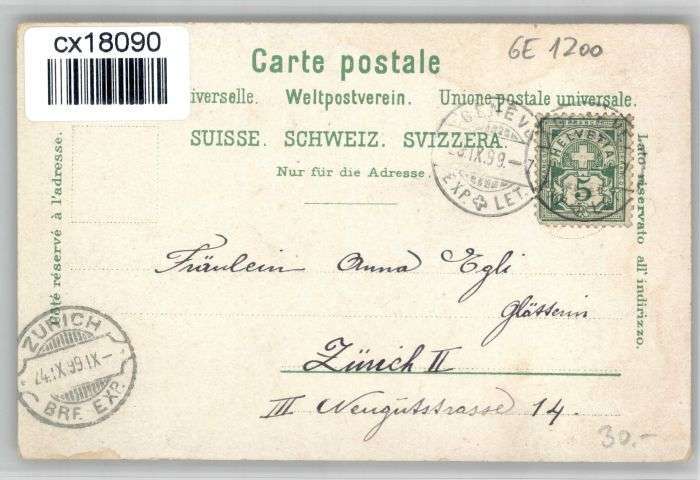 cx18090
GE 1200
Carte postale
iverselle. Weltpostverein. Unione postale universale.
SUISSE. SCHWEIZ. SVIZZERA.
Nur für die Adresse.
té réservé à l'adresse.
Lato riservato all' indirizzo.
GENÈVE
IX.99.-7
EXP. LET.
HELVETIA
5
Fräulein Anna Egli
Glätterin
Zürich II
III Neugutstrasse 14.
ZÜRICH
IX.99.XI-
BRF. EXP.
30.-